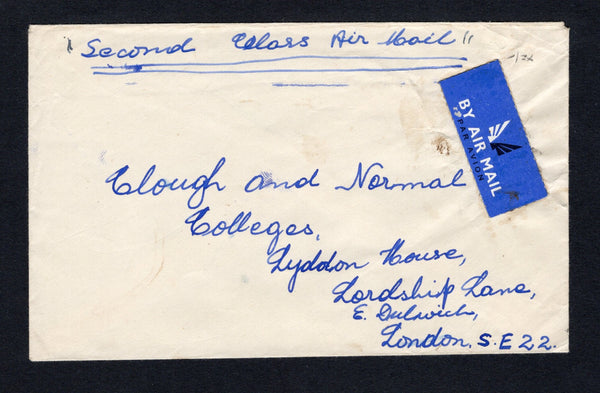 "Second Class Air Mail"
BY AIR MAIL
PAR AVION
Clough and Normal
Colleges,
Lyddon House,
Lordship Lane,
E. Dulwich,
London, S.E 22.